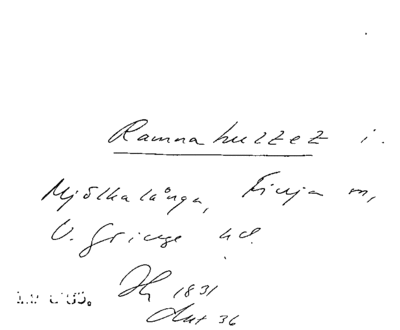 Ramnahultet i
Mjölkalånga, Finja sn,
V. Göinge hd.
1831
36